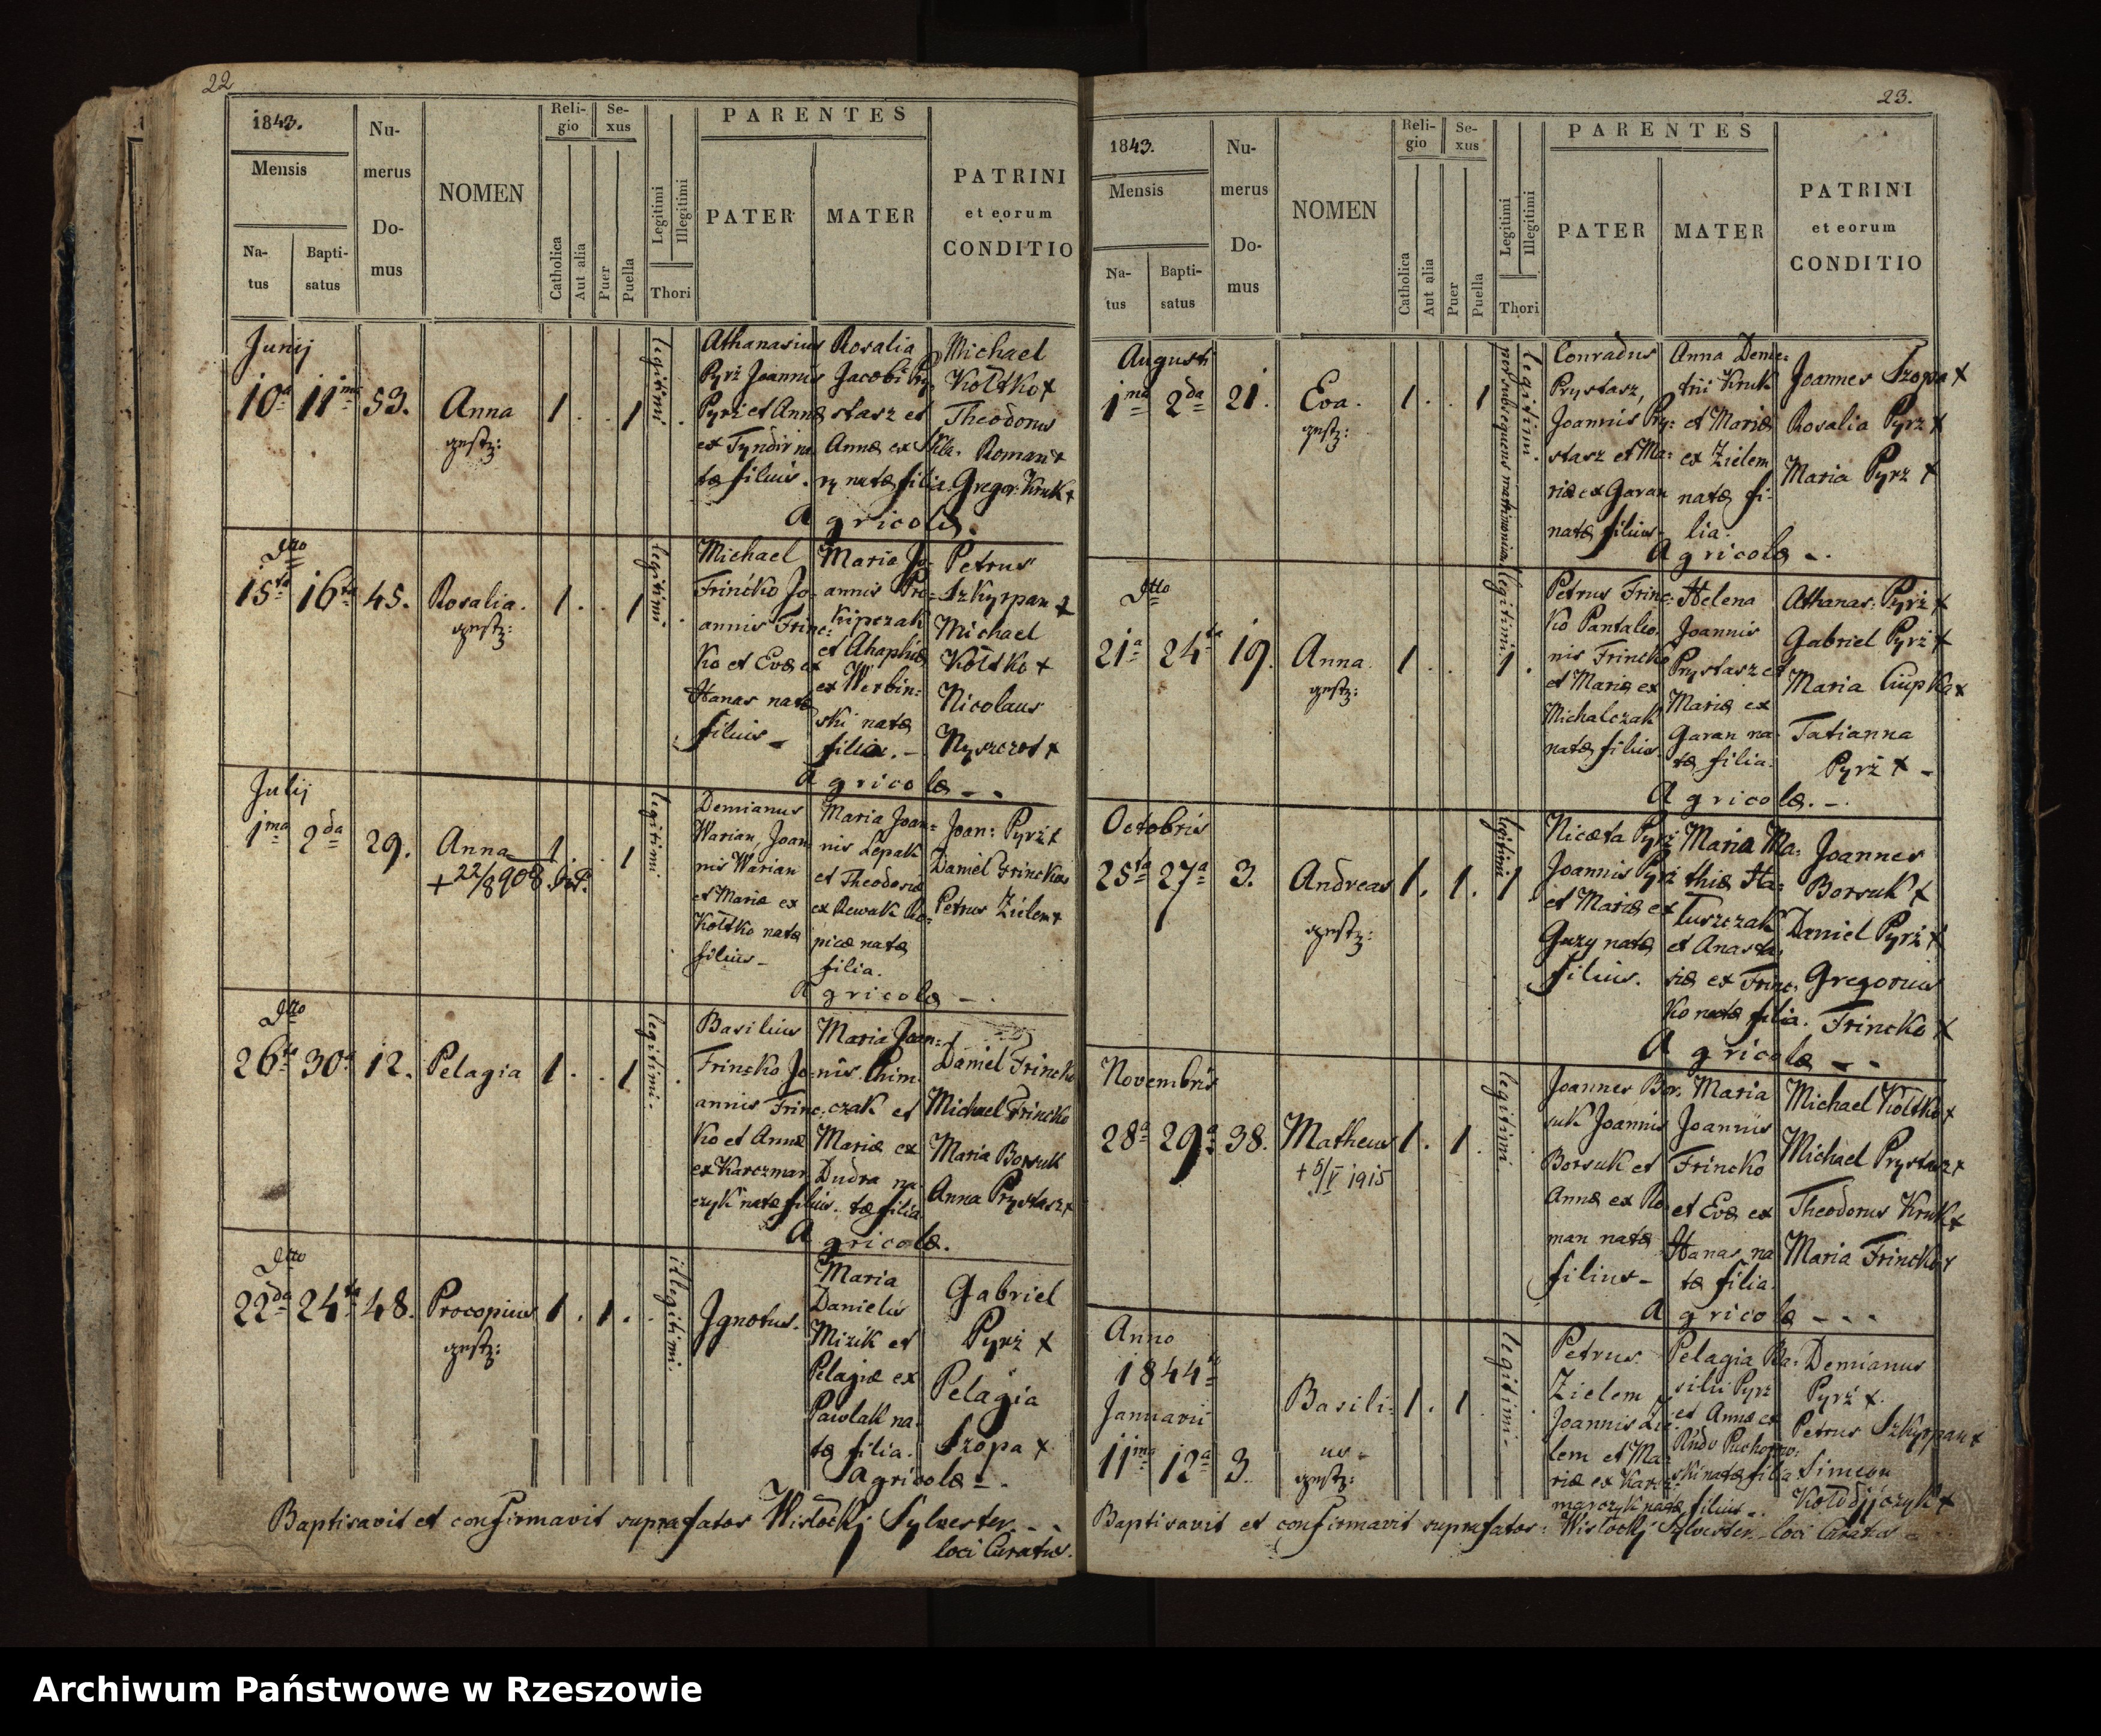 22
1843.
Mensis
Na-
tus
Bapti-
satus
Nu-
merus
Do-
mus
NOMEN
Reli-
gio
Catholica
Aut alia
Se-
xus
Puer
Puella
Legitimi
Illegitimi
Thori
PARENTES
PATER
MATER
PATRINI
et eorum
CONDITIO
Junij
10a 11ma 53.
Anna
gestz:
1 . . 1
legitimi
Athanasius
Pyrż Joannis
Pyrż et Annæ
ex Tyndir na
tæ filius.
Rosalia
Jacobi Pry
stasz et
Annæ ex Skla-
ry natæ filia.
Michael
Kołtko +
Theodorus
Roman +
Gregor: Kruk +
Agricolæ.
Dtto
15ta 16ta 45.
Rosalia.
gestz:
1 . . 1
legitimi
Michael
Frincko Jo-
annis Frinc:
ko et Evæ ex
Hanas natæ
filius -
Maria Jo-
annis Pro-
kipczak
et Ahaphiæ
ex Werbin:
ski natæ
filia. -
Petrus
Szkyrpan +
Michael
Kołtko +
Nicolaus
Nyszczot +
Agricolæ - .
Julij
1ma 2da 29.
Anna
+ 22/8 908.
1 . . 1
legitimi
Demianus
Warian, Joan
nis Warian
et Mariæ ex
Kołtko natæ
filius -
Maria Joan:
nis Lepak
et Theodoræ
ex Rewak Ro-
picæ natæ
filia.
Joan: Pyrż +
Daniel Frincko
Petrus Zielem +
Agricolæ - .
Dtto
26ta 30a 12.
Pelagia
1 . . 1
legitimi.
Basilius
Frincko Jo-
annis Frinc:
ko et Annæ
ex Karczmar
czyk natæ filius.
Maria Joan:
nis Chim
czak et
Mariæ ex
Dudra na
tæ filia
Daniel Frincko
Michael Frincko
Maria Borsuk
Anna Prystasz +
Agricolæ.
Dtto
22da 24ta 48.
Procopius
gestz:
1 . 1 .
illegitimi.
Ignotus.
Maria
Danielis
Mizik et
Pelagiæ ex
Pawlak na-
tæ filia.
Gabriel
Pyrż +
Pelagia
Szopa +
Agricolæ - .
Baptisavit et confirmavit suprafatus Wisłockj Sylvester - .
loci Curatus.
23.
1843.
Mensis
Na-
tus
Bapti-
satus
Nu-
merus
Do-
mus
NOMEN
Reli-
gio
Catholica
Aut alia
Se-
xus
Puer
Puella
Legitimi
Illegitimi
Thori
PARENTES
PATER
MATER
PATRINI
et eorum
CONDITIO
Augusti
1ma 2da 21.
Eva.
gestz:
1 . . 1
legitimi
per subsequens matrimonium
Conradus
Prystasz,
Joannis Pry:
stasz et Ma:
riæ ex Garan
natæ filius -
Anna Deme:
trii Kruk
et Mariæ
ex Zielem
natæ fi-
lia.
Joannes Szopa +
Rosalia Pyrż +
Maria Pyrż +
Agricolæ - .
Dtto
21a 24ta 19.
Anna
gestz:
1 . . 1 .
legitimi
Petrus Frinc:
ko Pantaleo-
nis Frincko
et Mariæ ex
Michalczak
natæ filius.
Helena
Joannis
Prystasz et
Mariæ ex
Garan na-
tæ filia.
Athanas: Pyrż +
Gabriel Pyrż +
Maria Ciupka +
Tatianna
Pyrż + -
Agricolæ. - .
Octobris
25ta 27a 3.
Andreas
gestz:
1 . 1 . 1
legitimi
Nicæta Pyrż
Joannis Pyrż
et Mariæ ex
Guzy natæ
filius.
Maria Ma:
thiæ Ha:
tuszczak
et Anasta
siæ ex Frinc:
ko natæ filia.
Joannes
Borsuk +
Daniel Pyrż +
Gregorius
Frincko +
Agricolæ - -
Novembris
28a 29a 38.
Matheus
+ 5/V 1915
1 . 1 .
legitimi
Joannes Bor:
suk Joannis
Borsuk et
Annæ ex Ro
man natæ
filius -
Maria
Joannis
Frincko
et Evæ ex
Hanas na
tæ filia.
Michael Kołtko +
Michael Prystasz +
Theodorus Kruk +
Maria Frincko +
Agricolæ - - -
Anno
1844to
Januarii
11ma 12a 3.
Basili:
us -
gestz:
1 . 1
legitimi.
Petrus
Zielem
Joannis Zie-
lem et Ma:
riæ ex Karcz-
marczyk natæ filius - .
Pelagia Ba:
silii Pyrż
et Annæ ex
ski natæ filia
Demianus
Pyrż +.
Petrus Szkyrpan +
Simeon
Kołodijczyk +
Baptisavit et confirmavit suprafatus: Wisłockj Sylvester loci Curatus -
Archiwum Państwowe w Rzeszowie